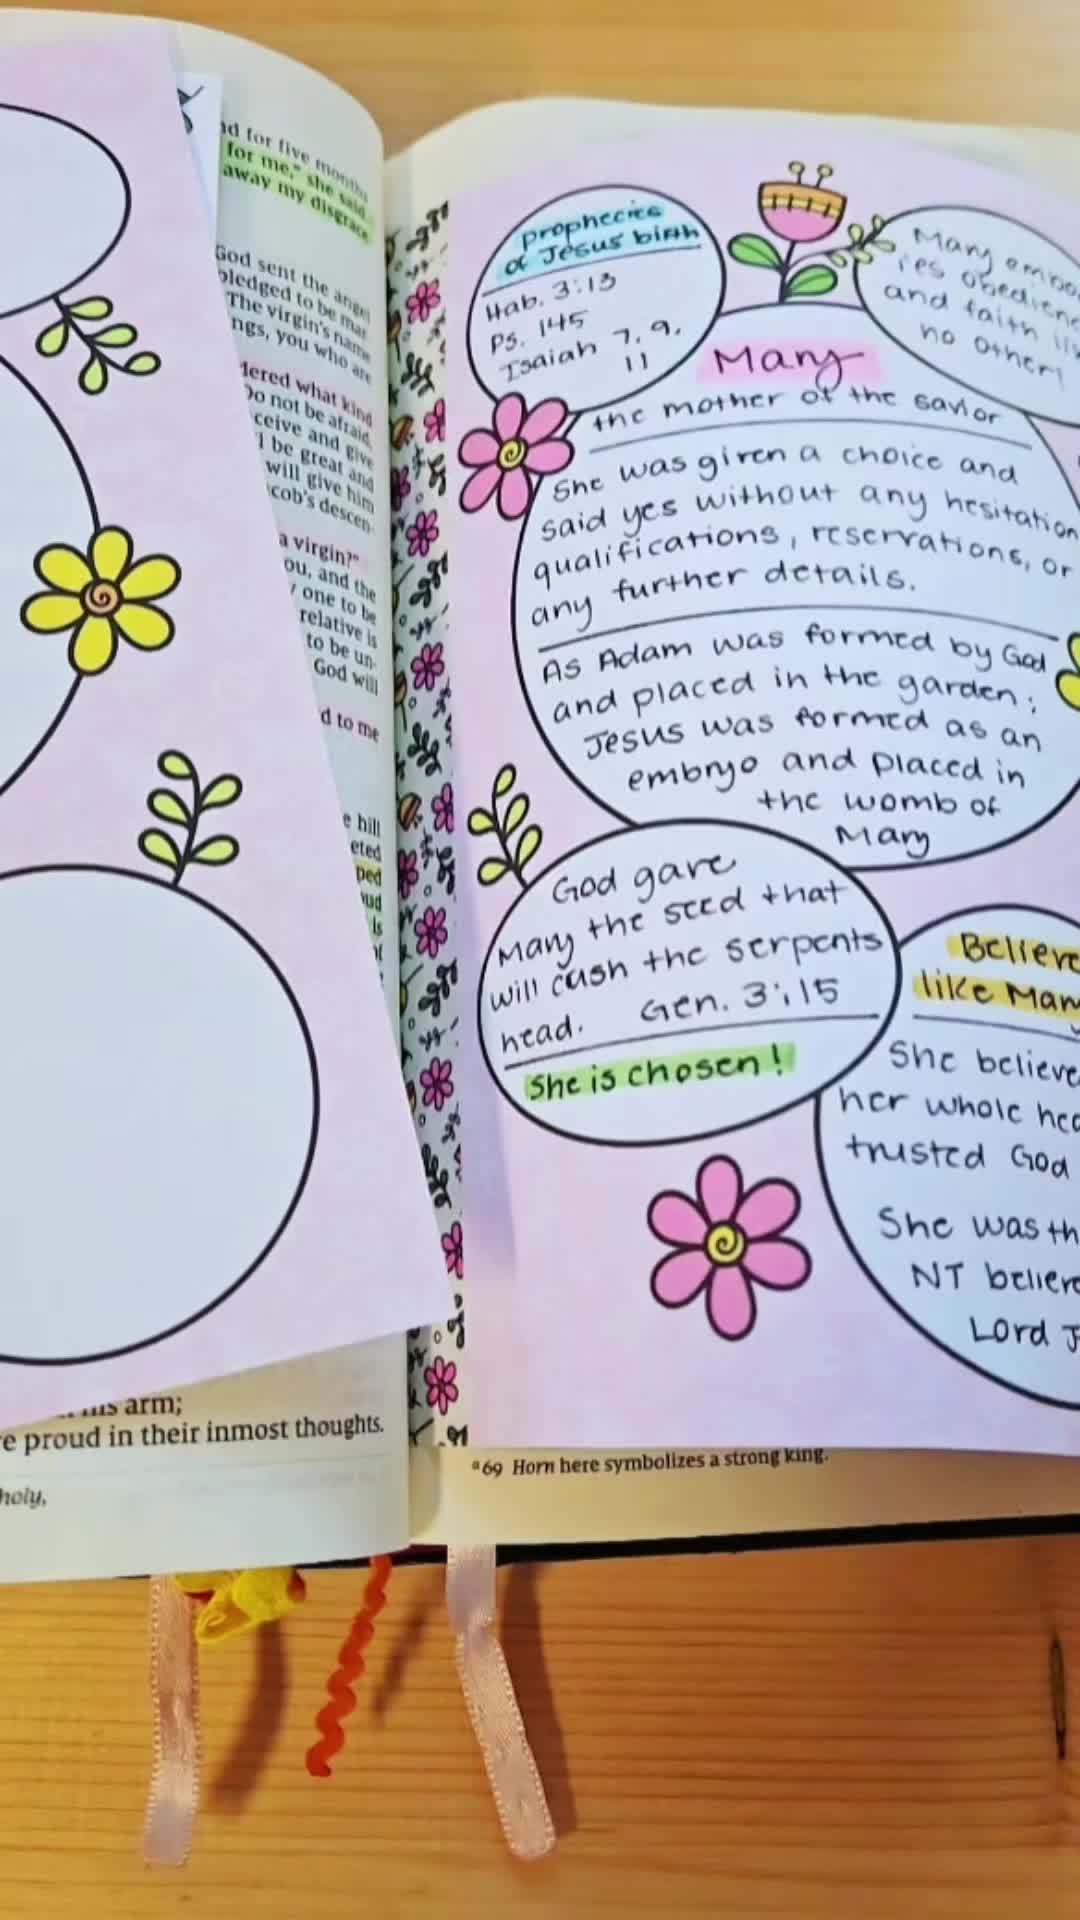 nd for five months
for me," she said.
away my disgrace
God sent the angel
pledged to be mar
The virgin's name
ngs, you who are
dered what kind
Do not be afraid,
ceive and give
l be great and
will give him
cob's descen-
a virgin?"
ou, and the
y one to be
relative is
to be un-
God will
d to me
e hill
eted
ped
ud
is
of
his arm;
e proud in their inmost thoughts.
holy,
prophecies
of Jesus birth
Hab. 3:13
Ps. 145
Isaiah 7, 9,
11
Mary embod
ies obedienc
and faith li
no other!
Mary
the mother of the savior
She was given a choice and
said yes without any hesitation,
qualifications, reservations, or
any further details.
As Adam was formed by God
and placed in the garden;
Jesus was formed as an
embryo and placed in
the womb of
Mary
God gave
Mary the seed that
will cush the serpents
head. Gen. 3:15
She is chosen!
Believe
like Mary
She believe
her whole hea
trusted God
She was th
NT believe
Lord J
a69 Horn here symbolizes a strong king.